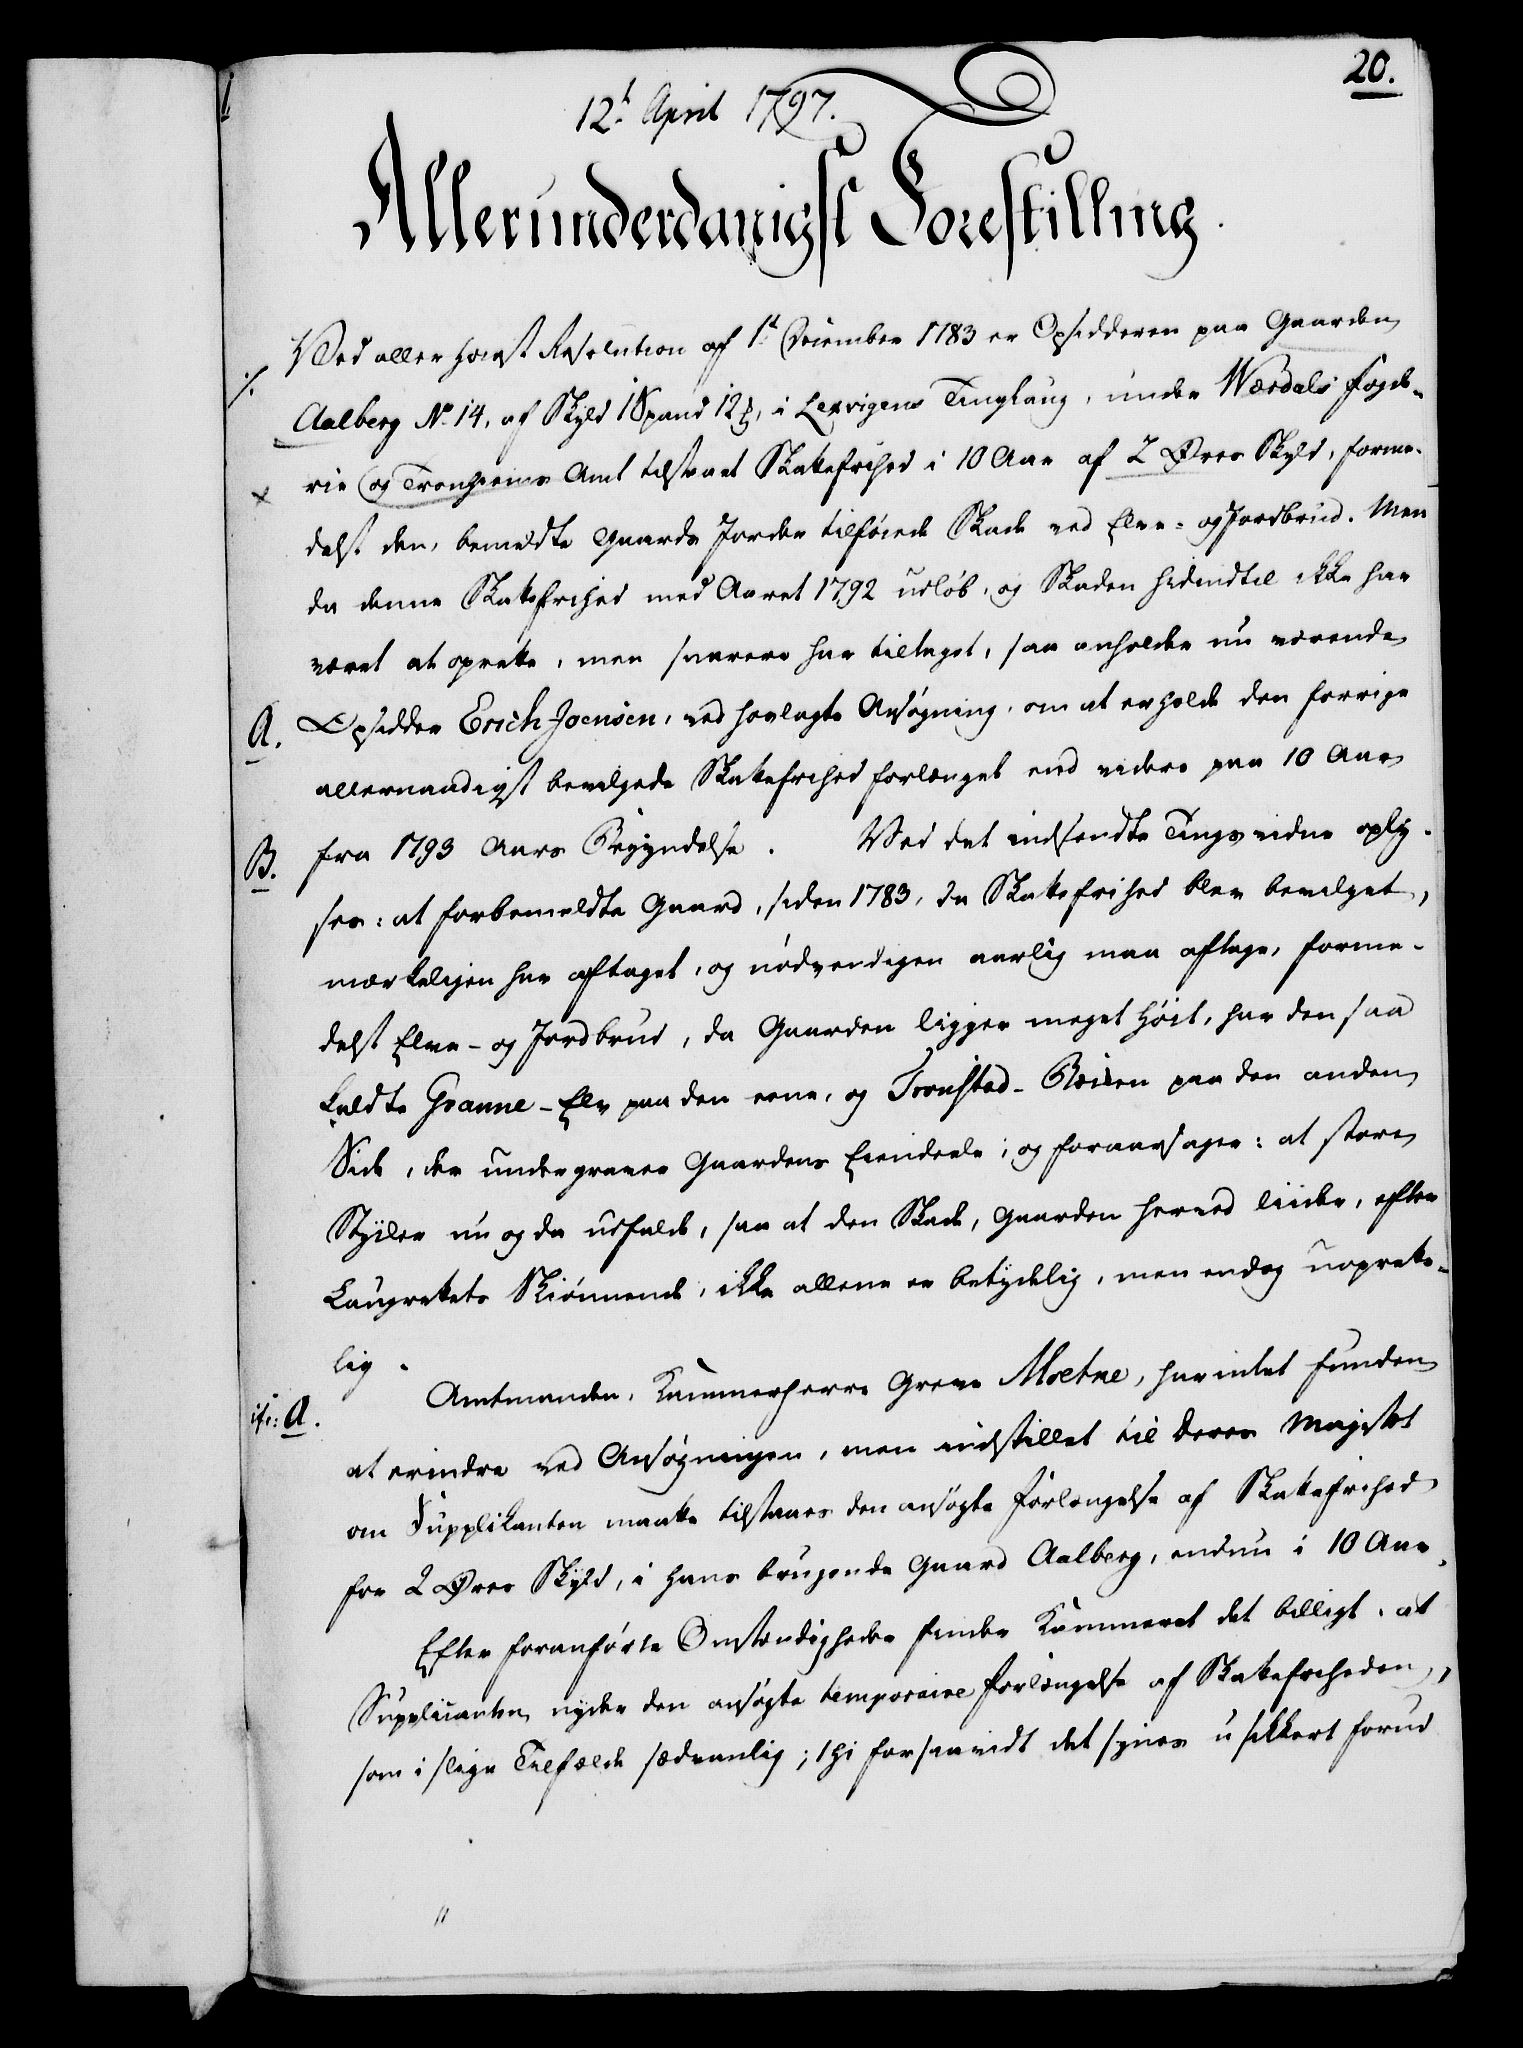 20.
12t April 1797.
Allerunderdanigst Forestilling.
Ved allerhøiest Resolution af 1t December 1783 er Opsidderen paa Gaarden
·/. Aalberg No. 14, af Skyld 1 Spand 12, i Lexvigens Tinglaug, under Wærdals Fogde-
rie og Tronhiems Amt tilstaaet Skatefrihed i 10 Aar af 2 Øres Skyld, forme-
delst den, bemeldte Gaards Jorder tilføiede Skade ved Elve- og Jordbrud. Men
da denne Skatefrihed med Aaret 1792 udløb, og Skaden hidindtil ikke har
været at oprette, men snarere har tiltaget, saa anholder nu værende
A. Opsidder Erich Joensen, ved hoslagte Ansøgning, om at erholde den forrige
allernaadigst bevilgede Skatefrihed forlænget end videre paa 10 Aar
B. fra 1793 Aars Begyndelse. Ved det indsendte Tingsvidne oply-
ses: at forbemeldte Gaard, siden 1783, da Skatefrihed blev bevilget,
mærkeligen har aftaget, og nødvendigen aarlig maa aftage, forme-
delst Elve- og Jordbrud, da Gaarden ligger meget høit, har den saa
kaldte Granne-Elv paa den eene, og Tronstad-Bækken paa den anden
Side, der undergraver Gaardens Eiendeele; og foraarsager: at store
Stykker nu og da udfalde, saa at den Skade, Gaarden herved liider, efter
Laugrettets Skiønnende, ikke alleene er betydelig, men endog uoprette-
lig.
ifr: A. Amtmanden, Kammerherre Greve Moltke, har intet funden
at erindre ved Ansøgningen, men indstillet til Deres Majestæt
om Supplikanten maatte tilstaaes den ansøgte Forlængelse af Skatefrihed
for 2 Øres Skyld, i hans brugende Gaard Aalberg, endnu i 10 Aar.
Efter foranførte Omstændigheder finder Kammeret det billigt, at
Supplicanten nyder den ansøgte temporaire Forlængelse af Skatefriheden,
som i slige Tilfælde sædvanlig; thi forsaavidt det synes usikkert forud